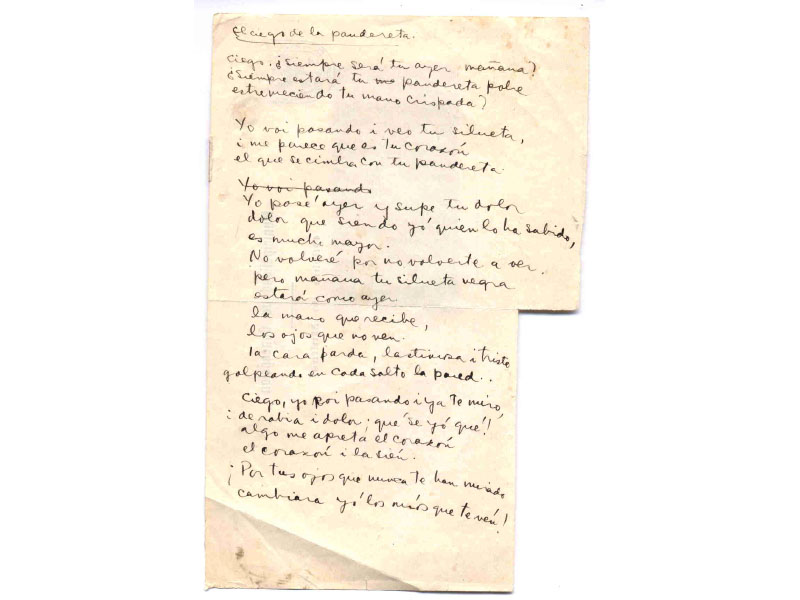 El ciego de la pandereta.
Ciego: ¿Siempre será tu ayer mañana?
¿Siempre estará tu pandereta pobre
estremeciendo tu mano crispada?
Yo voi pasando i veo tu silueta,
i me parece que es tu corazón
el que se cimbra con tu pandereta.
Yo voi pasando
Yo pasé ayer y supe tu dolor
dolor que siendo yó quien lo ha sabido,
es mucho mayor.
No volveré por no volverte a ver.
pero mañana tu silueta negra
estará como ayer
la mano que recibe,
los ojos que no ven.
la cara parda, lastimosa i triste
golpeando en cada salto la pared..
Ciego, yo voi pasando i ya te miro,
i de rabia i dolor; qué se yó qué!
algo me aprieta el corazón
el corazón i la sién.
¡Por tus ojos que nunca te han mirado
cambiara yó los míos que te ven!